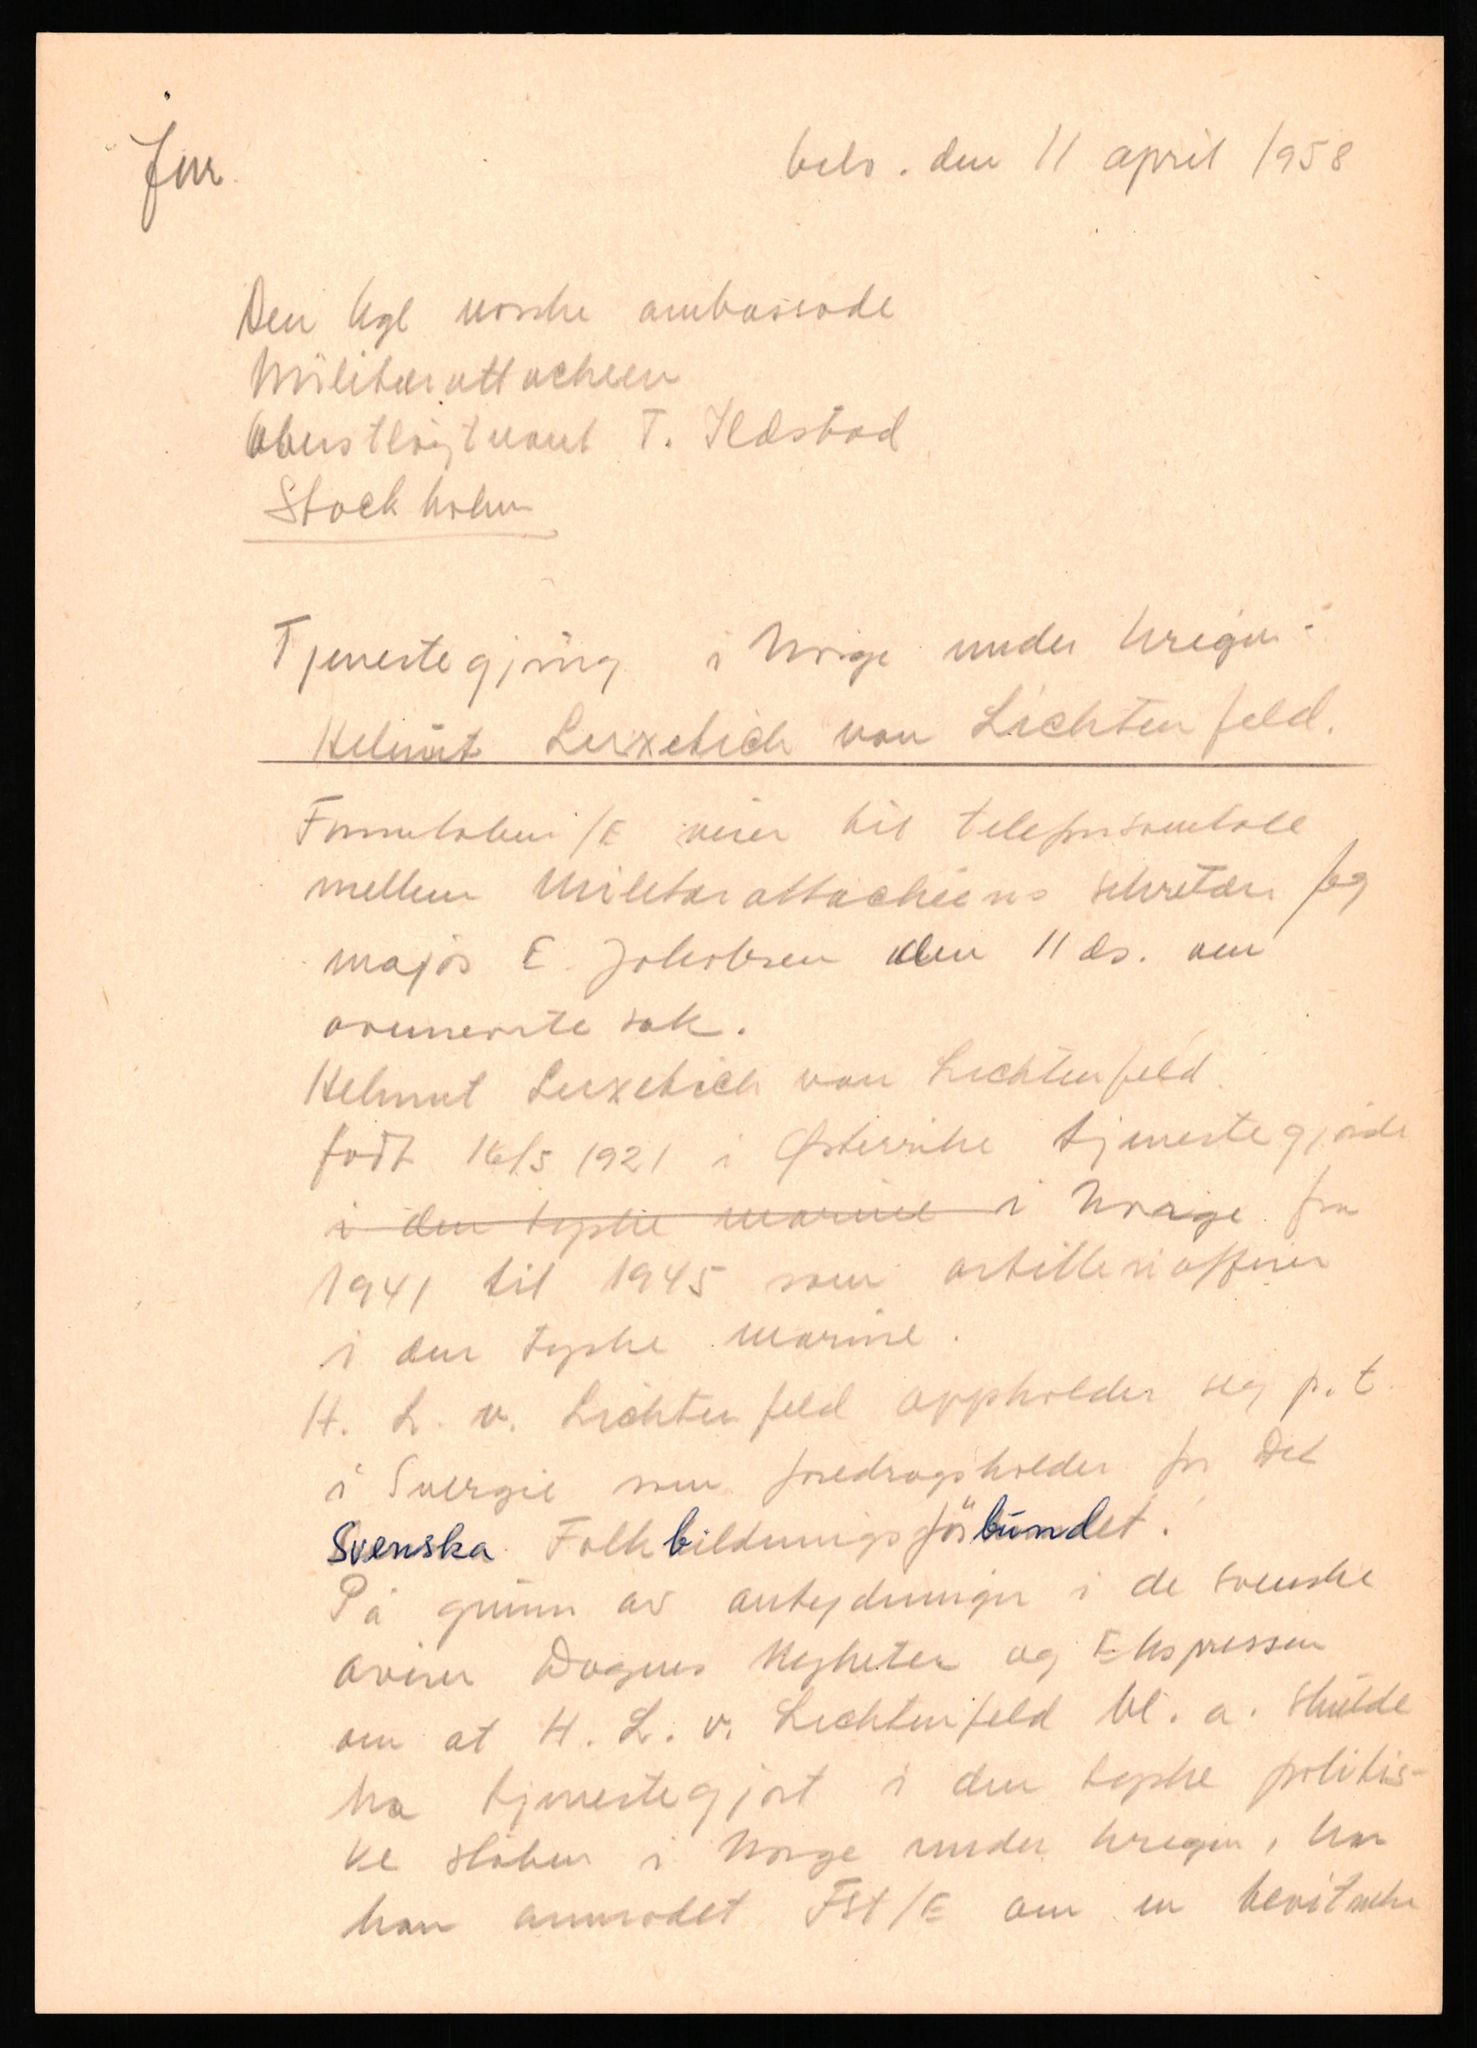 den 11 april 1958
Den kgl norske ambassade
Militærattacheen
Oberstløjtnant T. Ildstad
Stockholm
Tjenestegjøring i Norge under krigen -
Helmut Luxetich von Lichtenfeld.
Forsvarstaben/E viser til telefonsamtale
mellem Militærattachéens sekretær og
major E. Jakobsen den 11 ds. om
ovennevnte sak.
Helmut Luxetich von Lichtenfeld
født 16/5 1921 i Østerrike tjenestegjorde
i den tyske marine i Norge fra
1941 til 1945 som artilleriofficer
i den tyske marine.
H. L. v. Lichtenfeld oppholder seg p.t.
i Sverige som foredragsholder for Det
Svenska Folkbildningsförbundet.
På grunn av antydninger i de svenske
aviser Dagens Nyheter og Ekspressen
om at H. L. v. Lichtenfeld bl. a. skulde
ha tjenestegjort i den tyske politis-
ke staben i Norge under krigen, har
han anmodet Fst/E om en